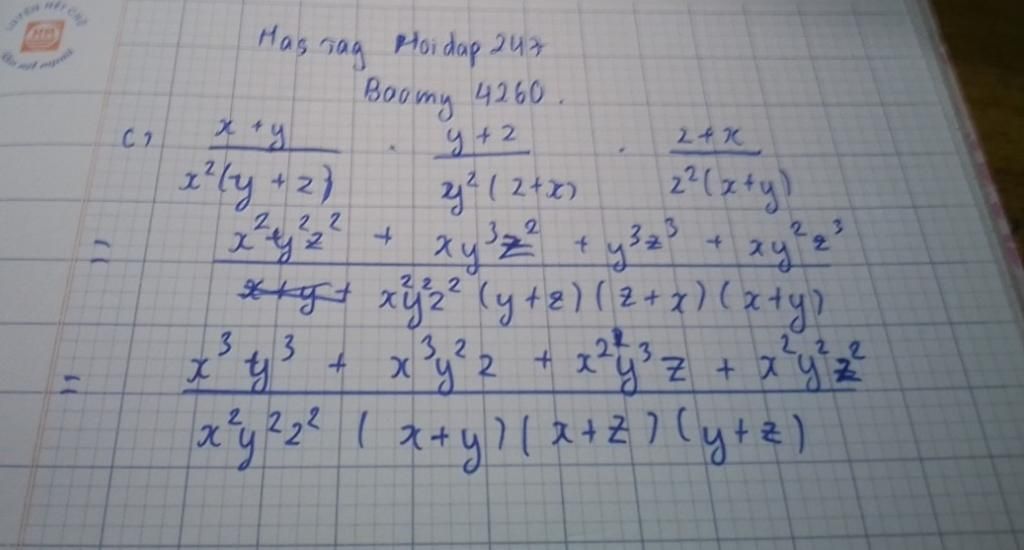 LUYỆN NÉT CHỮ
HM
Has Tag Hoidap 247
Baomy 4260.
c) x + y / x²(y + z) . y + z / y²(z+x) . z + x / z²(x+y)
= x²y²z² + xy³z² + y³z³ + xy²z³ / x²y²z² (y+z)(z+x)(x+y)
= x³y³ + x³y²z + x²y³z + x²y²z² / x²y²z² (x+y)(x+z)(y+z)